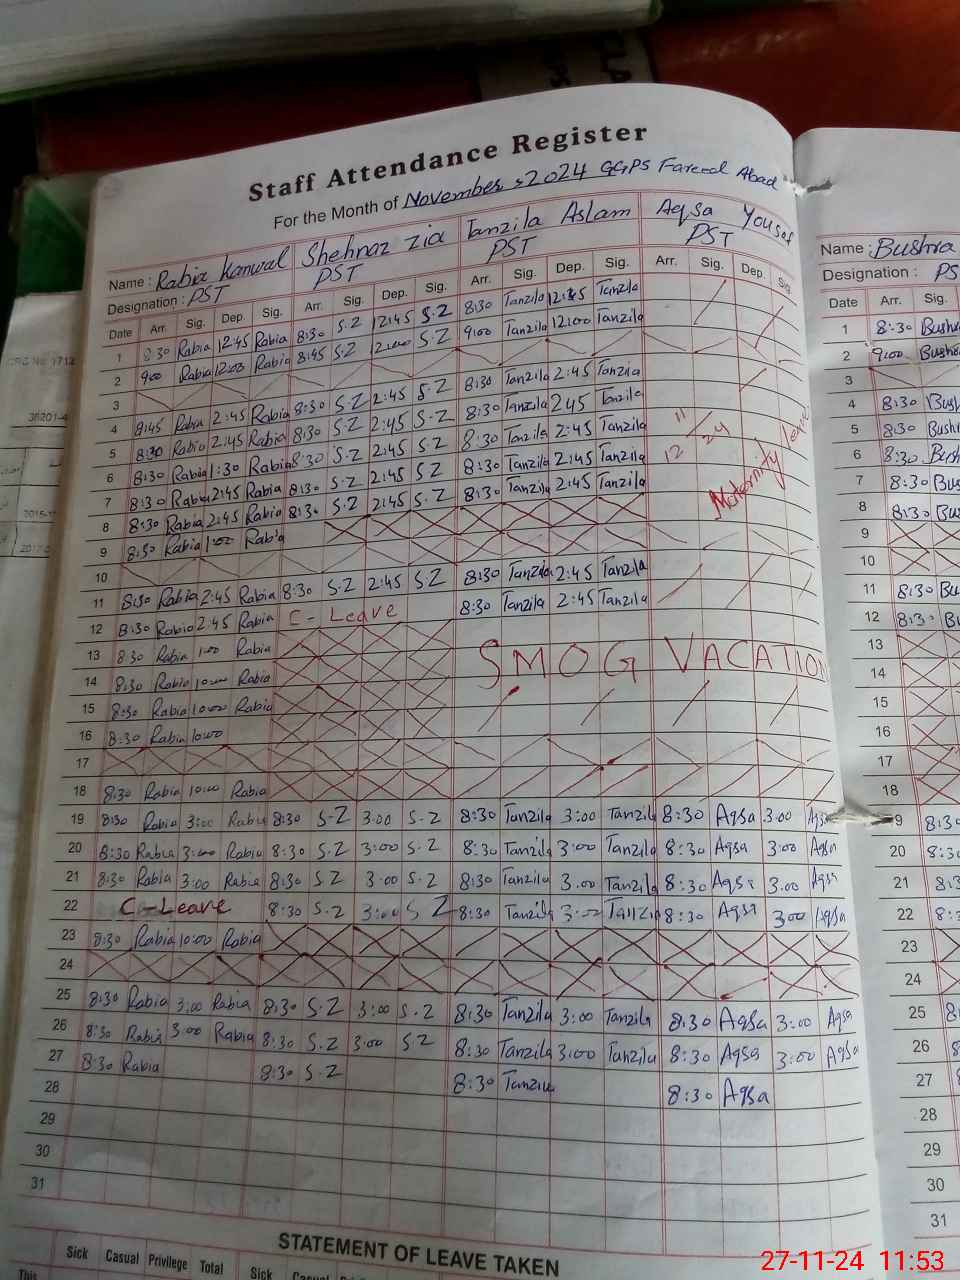 Staff Attendance Register
For the Month of November, 2024 GGPS Fareed Abad
Name : Rabia Kanwal Shehnaz Zia Tanzila Aslam Aqsa Yousaf
Designation : PST PST PST PST
Date Arr. Sig. Dep. Sig. Arr. Sig. Dep. Sig. Arr. Sig. Dep. Sig. Arr. Sig. Dep. Sig.
1 8:30 Rabia 12:45 Rabia 8:30 S.Z 12:45 S.Z 8:30 Tanzila 12:45 Tanzila
2 9:00 Rabia Rabia 8:45 S.Z 12:00 S.Z 9:00 Tanzila 12:00 Tanzila
3
4 8:45 Rabia 2:45 Rabia 8:30 S.Z 2:45 S.Z 8:30 Tanzila 2:45 Tanzila
5 8:30 Rabia 2:45 Rabia 8:30 S.Z 2:45 S.Z 8:30 Tanzila 2:45 Tanzila
6 8:30 Rabia 1:30 Rabia 8:30 S.Z 2:45 S.Z 8:30 Tanzila 2:45 Tanzila
7 8:30 Rabia 2:45 Rabia 8:30 S.Z 2:45 S.Z 8:30 Tanzila 2:45 Tanzila
8 8:30 Rabia 2:45 Rabia 8:30 S.Z 2:45 S.Z 8:30 Tanzila 2:45 Tanzila
Maternity Leave
9 8:30 Rabia 1:00 Rabia
10
11 8:30 Rabia 2:45 Rabia 8:30 S.Z 2:45 S.Z 8:30 Tanzila 2:45 Tanzila
12 8:30 Rabia 2:45 Rabia C- Leave 8:30 Tanzila 2:45 Tanzila
13 8:30 Rabia 1:00 Rabia
14 8:30 Rabia 10:00 Rabia SMOG VACATION
15 8:30 Rabia 10:00 Rabia
16 8:30 Rabia 10:00
17
18 8:30 Rabia 10:00 Rabia
19 8:30 Rabia 3:00 Rabia 8:30 S.Z 3:00 S.Z 8:30 Tanzila 3:00 Tanzila 8:30 Aqsa 3:00 Aqsa
20 8:30 Rabia 3:00 Rabia 8:30 S.Z 3:00 S.Z 8:30 Tanzila 3:00 Tanzila 8:30 Aqsa 3:00 Aqsa
21 8:30 Rabia 3:00 Rabia 8:30 S.Z 3:00 S.Z 8:30 Tanzila 3.00 Tanzila 8:30 Aqsa 3.00 Aqsa
22 C-Leave 8:30 S.Z 3:00 S Z 8:30 Tanzila 3:00 Tanzila 8:30 Aqsa 3:00 Aqsa
23 8:30 Rabia 10:00 Rabia
24
25 8:30 Rabia 3:00 Rabia 8:30 S.Z 3:00 S.Z 8:30 Tanzila 3:00 Tanzila 8:30 Aqsa 3:00 Aqsa
26 8:30 Rabia 3:00 Rabia 8:30 S.Z 3:00 S Z 8:30 Tanzila 3:00 Tanzila 8:30 Aqsa 3:00 Aqsa
27 8:30 Rabia 8:30 S.Z 8:30 Tanzila 8:30 Aqsa
28
29
30
31
STATEMENT OF LEAVE TAKEN
Sick Casual Privilege Total Sick
This
Name : Bushra
Designation : PS
Date Arr. Sig.
1 8:30
2 9:00
3
4 8:30
5 8:30
6 8:30
7 8:30
8 8:30
9
10
11 8:30
12 8:30
13
14
15
16
17
18
9 8:30
20
21
22
23
24
25
26
27
28
29
30
31
27-11-24 11:53